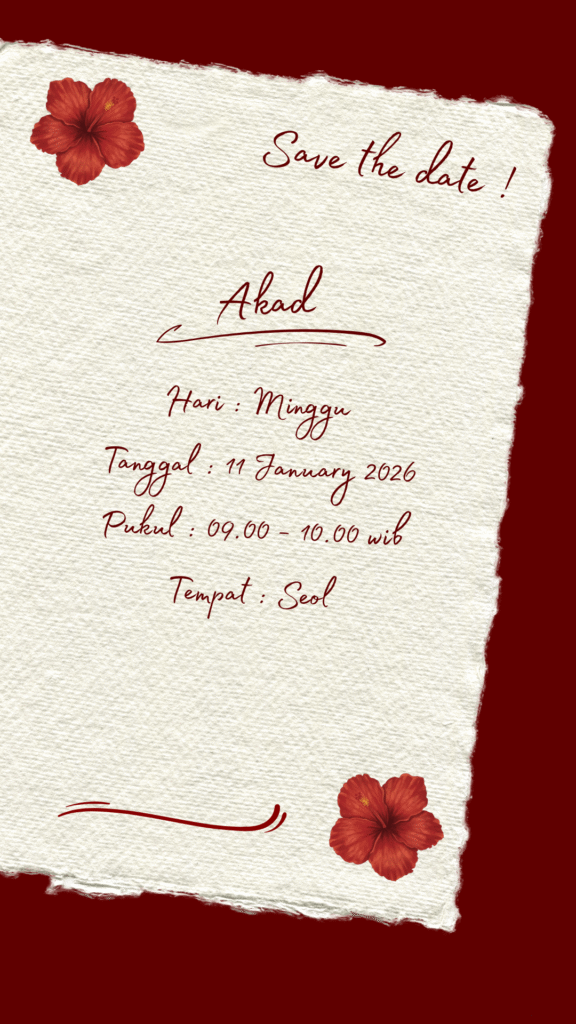 Save the date !
Akad
Hari : Minggu
Tanggal : 11 January 2026
Pukul : 09.00 - 10.00 wib
Tempat : Seol